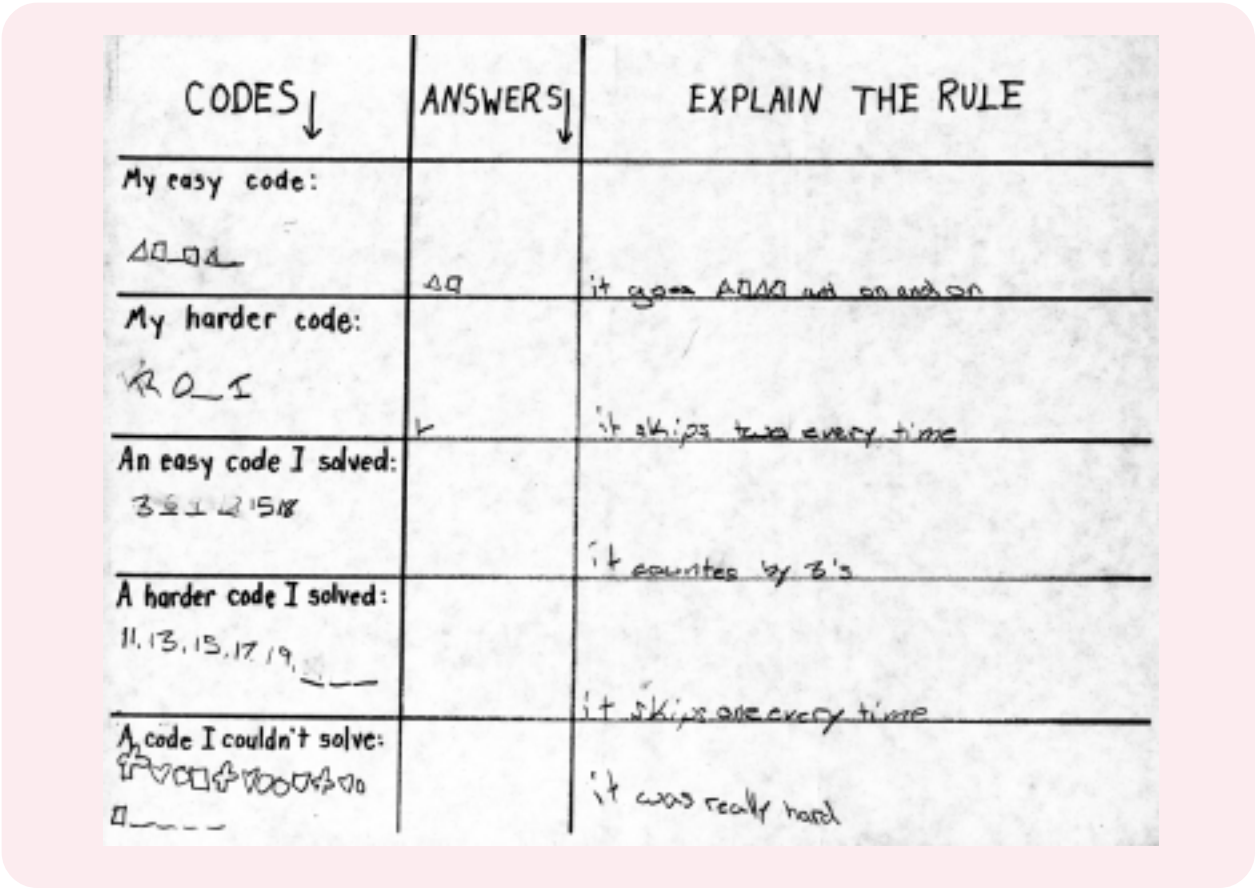 CODES↓ ANSWERS↓ EXPLAIN THE RULE
My easy code:
△□_□△_
△□ it goes △□△□ and on and on
My harder code:
R O _ I
it skips two every time
An easy code I solved:
3 15 18
it countes by 3's
A harder code I solved:
11, 13, 15, 17 19, _ _ _
it skips one every time
A code I couldn't solve:
it was really hard